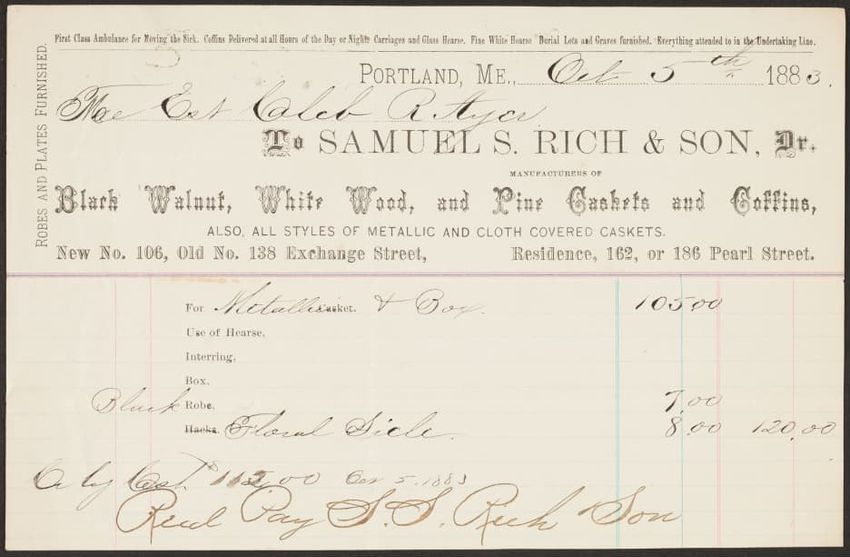 First Class Ambulance for Moving the Sick. Coffins Delivered at all Hours of the Day or Night. Carriages and Glass Hearse. Fine White Hearse Burial Lots and Graves furnished. Everything attended to in the Undertaking Line.
ROBES AND PLATES FURNISHED.
PORTLAND, ME., Oct 5th 1883.
The Est Caleb R. Ayer
To SAMUEL S. RICH & SON, Dr.
MANUFACTURERS OF
Black Walnut, White Wood, and Pine Caskets and Coffins,
ALSO, ALL STYLES OF METALLIC AND CLOTH COVERED CASKETS.
New No. 106, Old No. 138 Exchange Street, Residence, 162, or 186 Pearl Street.
For Metallic Casket. & Box. 105.00
Use of Hearse.
Interring.
Box.
Black Robe. 7.00
Hacks. Floral Sicle. 8.00 120.00
Oct 5. 1883
Recd Pay S. S. Rich & Son